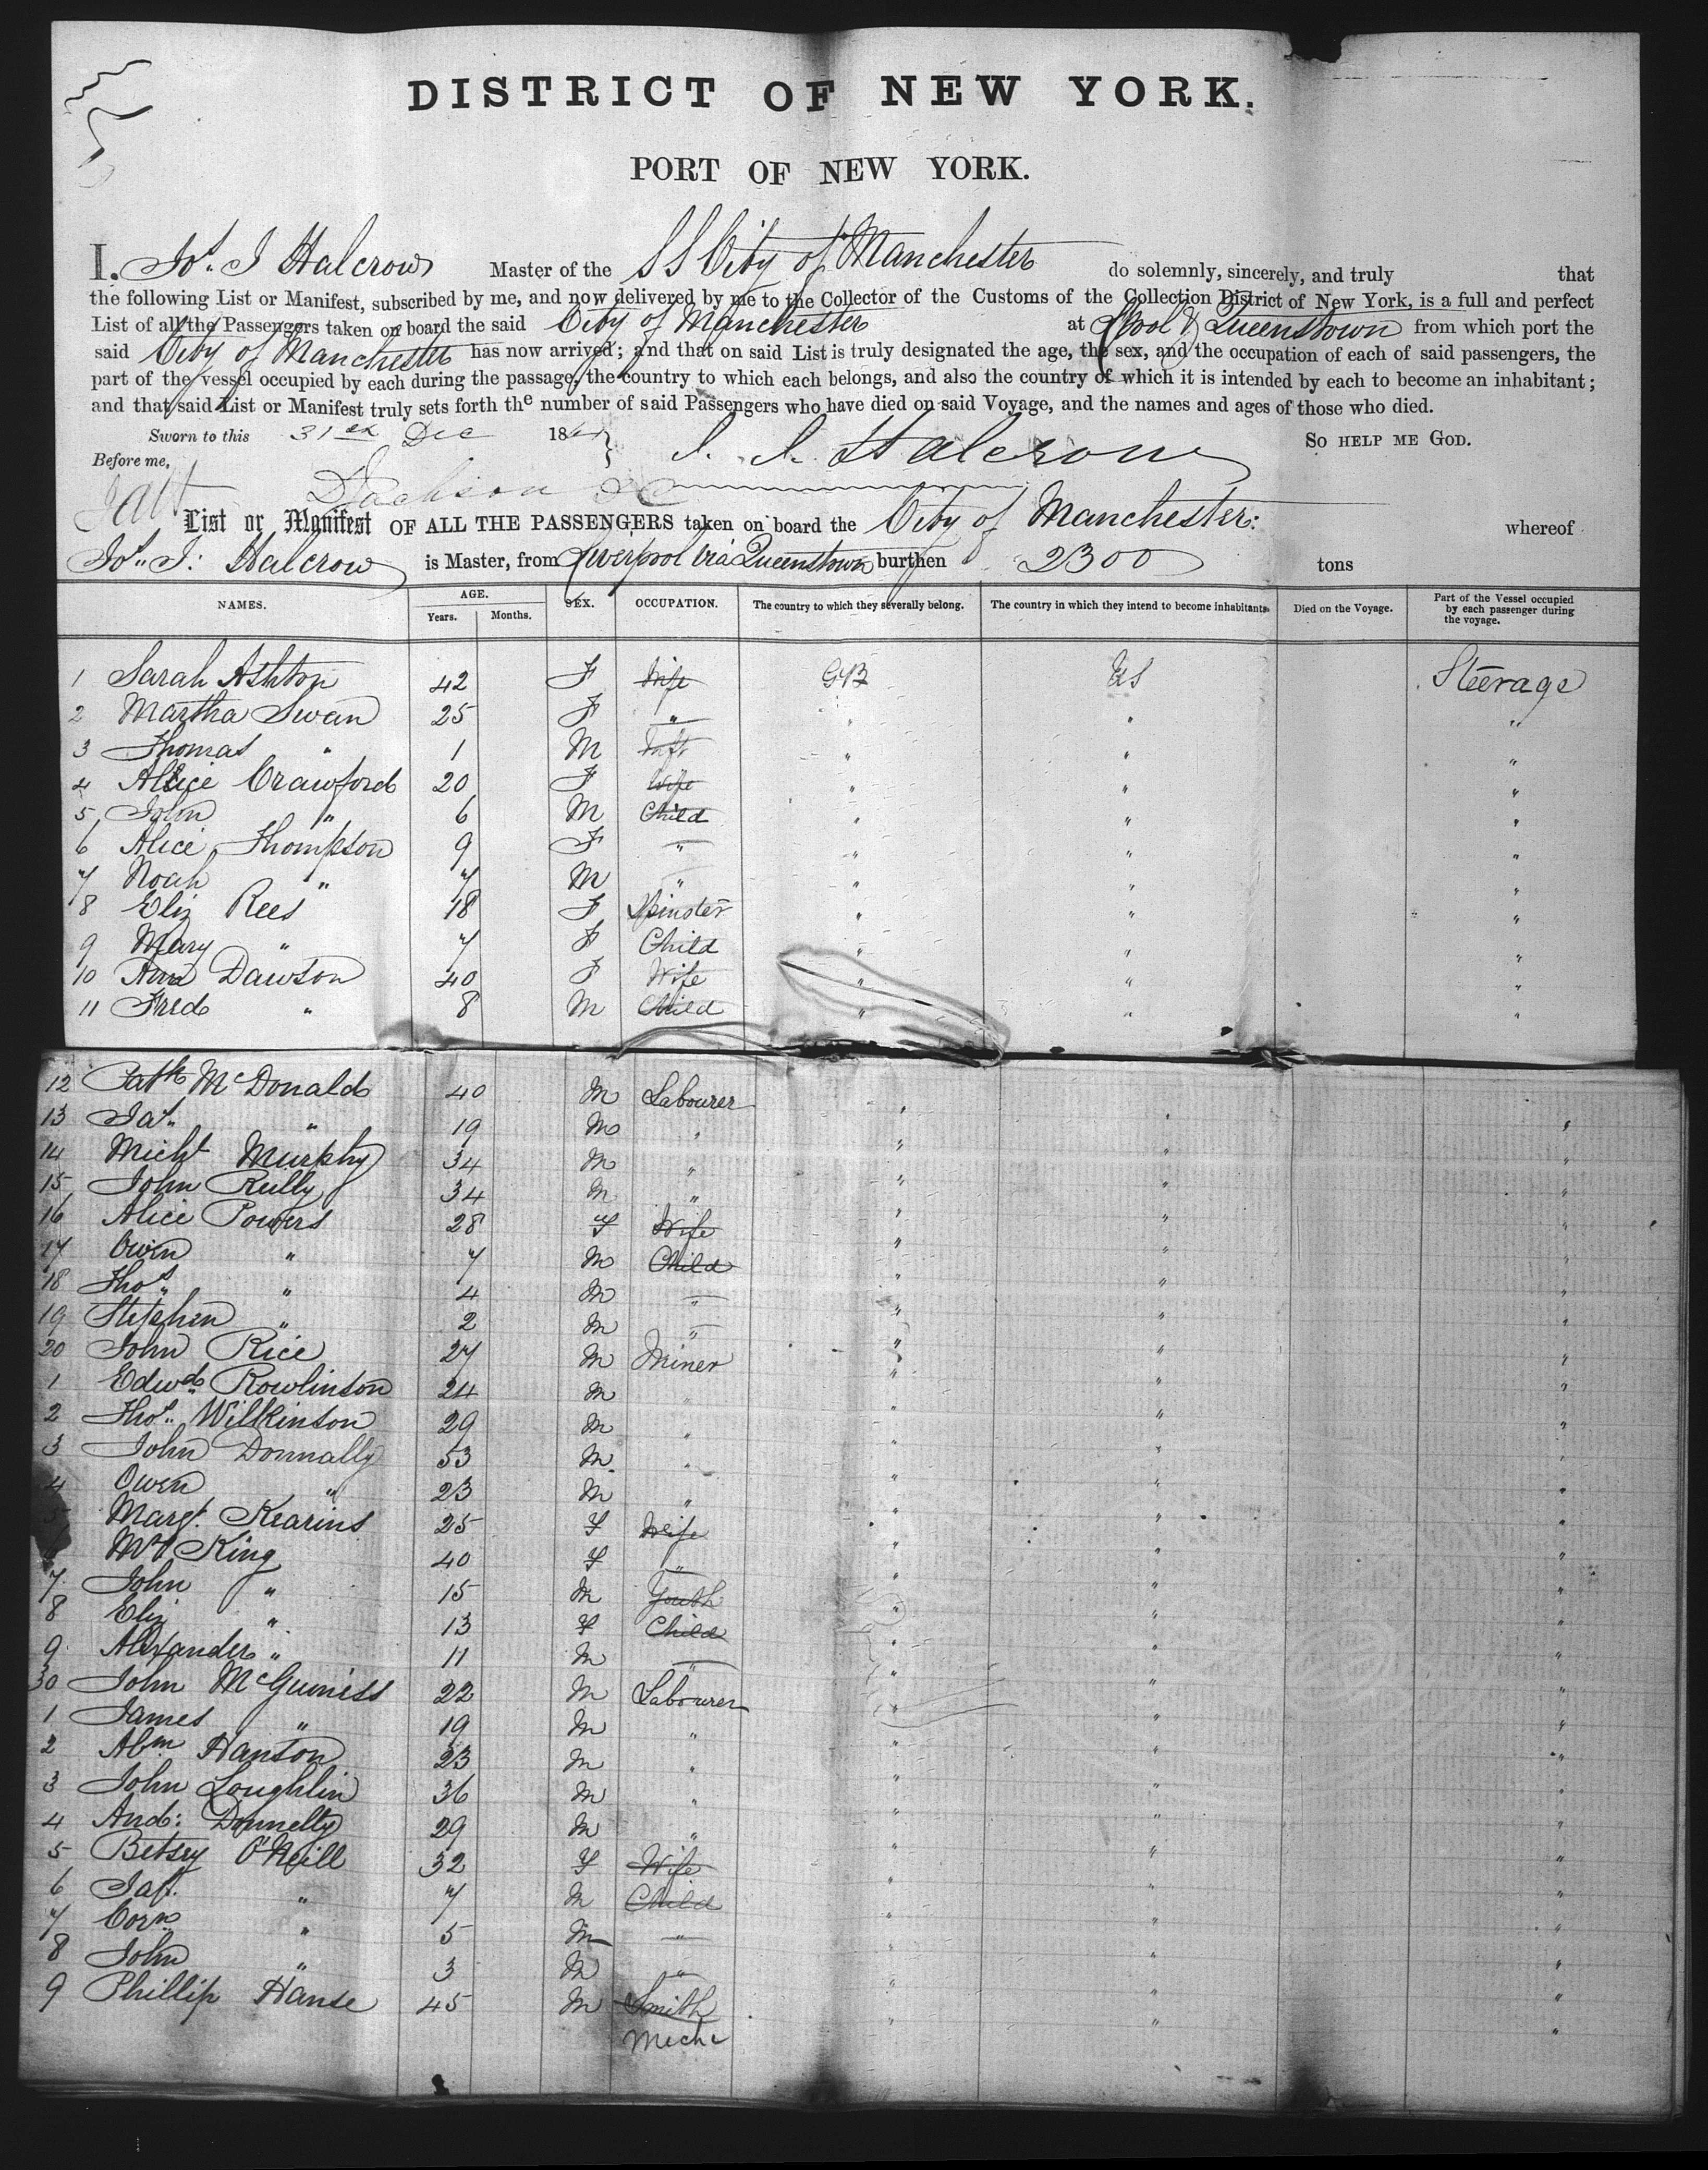 DISTRICT OF NEW YORK.
PORT OF NEW YORK.
I. Jos. J Halcrow Master of the SS City of Manchester do solemnly, sincerely, and truly that
the following List or Manifest, subscribed by me, and now delivered by me to the Collector of the Customs of the Collection District of New York, is a full and perfect
List of all the Passengers taken on board the said City of Manchester at L'pool & Queenstown from which port the
said City of Manchester has now arrived; and that on said List is truly designated the age, the sex, and the occupation of each of said passengers, the
part of the vessel occupied by each during the passage, the country to which each belongs, and also the country of which it is intended by each to become an inhabitant;
and that said List or Manifest truly sets forth the number of said Passengers who have died on said Voyage, and the names and ages of those who died.
Sworn to this 31 Dec 186 J. J. Halcrow SO HELP ME GOD.
Before me,
List or Manifest OF ALL THE PASSENGERS taken on board the City of Manchester: whereof
Jos. J: Halcrow is Master, from Liverpool via Queenstown burthen 2300 tons
NAMES. AGE. Years. Months. SEX. OCCUPATION. The country to which they severally belong. The country in which they intend to become inhabitants. Died on the Voyage. Part of the Vessel occupied by each passenger during the voyage.
1 Sarah Ashton 42 F Wife GB US Steerage
2 Martha Swan 25 F " " " "
3 Thomas " 1 M Inft " " "
4 Alice Crawford 20 F Wife " " "
5 John " 6 M Child " " "
6 Alice Thompson 9 F " " " "
7 Noah " 7 M " " " "
8 Eliz Rees 18 F Spinster " " "
9 Mary " 7 F Child " " "
10 Ann Dawson 40 F Wife " " "
11 Fred " 8 M Child " " "
12 Patk McDonald 40 M Labourer " " "
13 Jas. " 19 M " " " "
14 Michl Murphy 34 M " " " "
15 John Reilly 34 M " " " "
16 Alice Powers 28 F Wife " " "
17 Owen " 7 M Child " " "
18 Thos. " 4 M " " " "
19 Stephen " 2 M " " " "
20 John Rice 27 M Miner " " "
1 Edwd Rowlinson 24 M " " " "
2 Thos. Wilkinson 29 M " " " "
3 John Donnally 53 M " " " "
4 Owen " 23 M " " " "
5 Margt. Kearins 25 F Wife " " "
King 40 F " " " "
7 John " 15 M Youth " " "
8 Eliz " 13 F Child " " "
9 Alexander " 11 M " " " "
30 John McGuiness 22 M Labourer " " "
1 James " 19 M " " " "
2 Abm Hanson 23 M " " " "
3 John Loughlin 36 M " " " "
4 And: Donnelly 29 M " " " "
5 Betsey O'Neill 32 F Wife " " "
6 Jas. " 7 M Child " " "
7 Corn. " 5 M " " " "
8 John " 3 M " " " "
9 Phillip Hanse 45 M Smith " " "
Mech